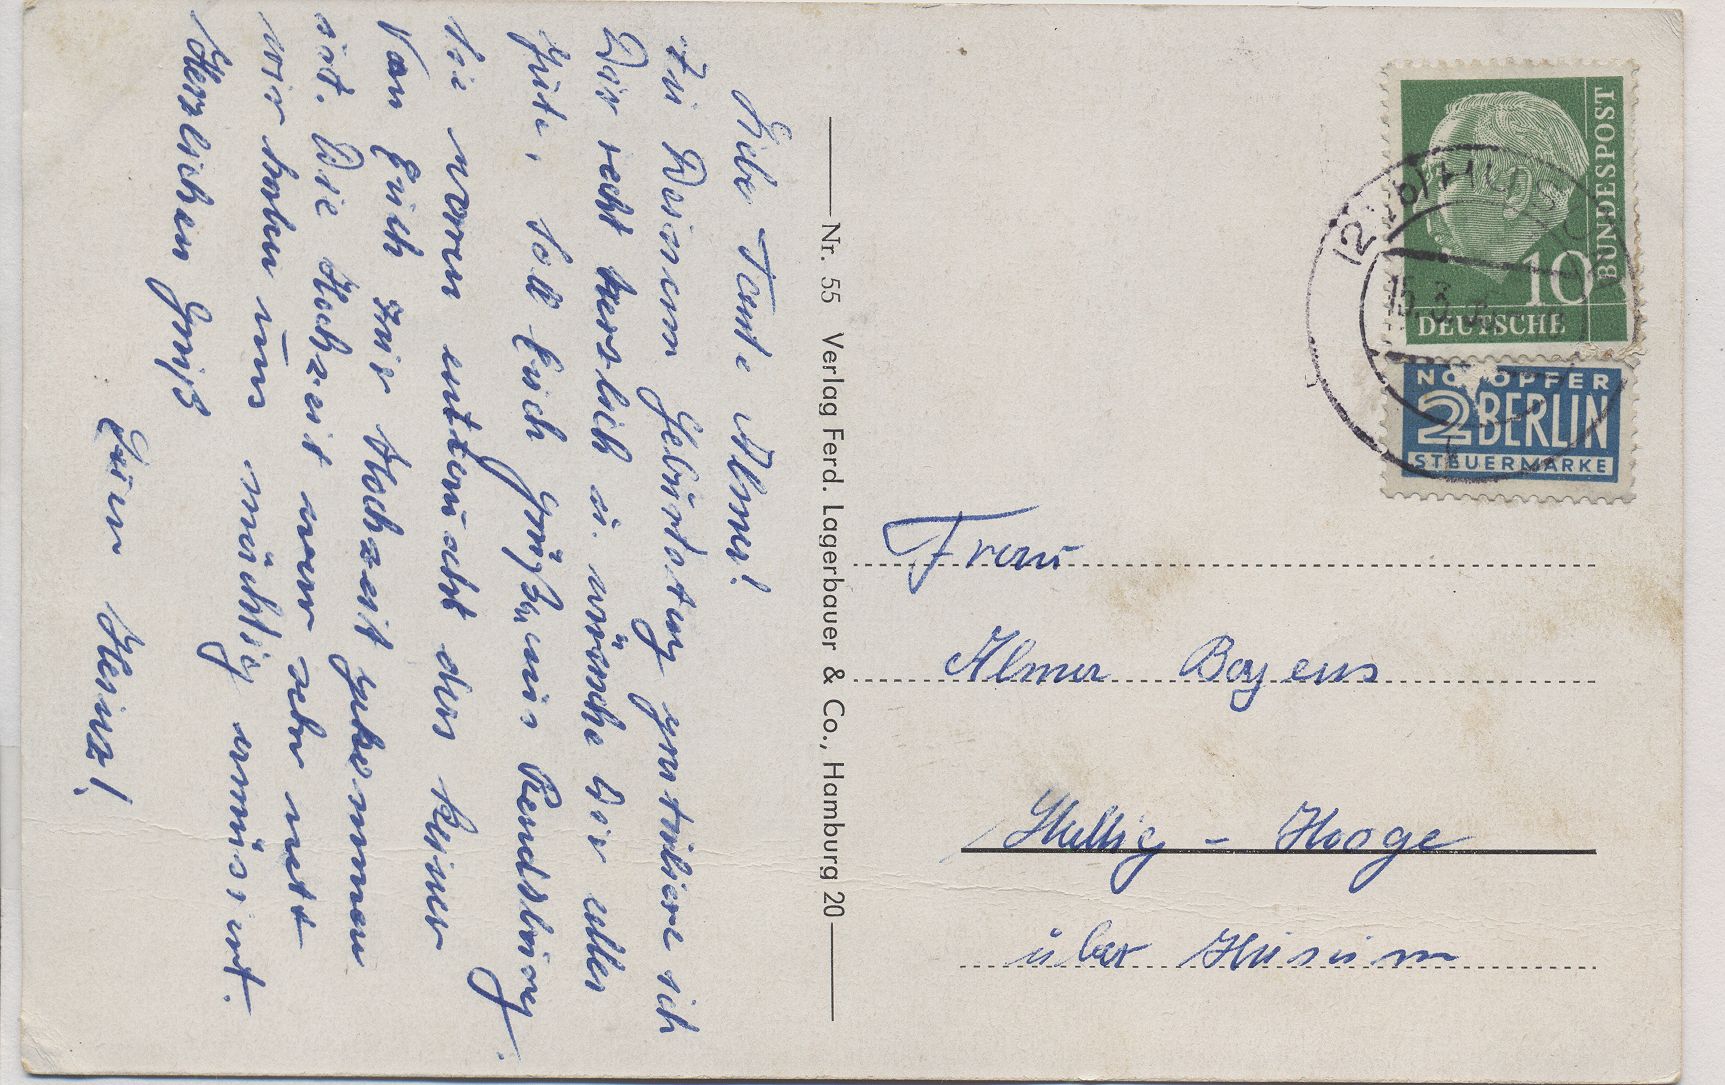 Liebe Tante Alma!
Zu Deinem Geburtstag gratuliere ich
Dir recht herzlich u. wünsche Dir alles
Gute, soll Euch grüßen aus Rendsburg
Sie waren enttäuscht das keiner
Von Euch zur Hochzeit gekommen
ist. Die Hochzeit war sehr nett
wir haben uns mächtig amüsiert.
Herzlichen Gruß
Heinz!
Nr. 55 Verlag Ferd. Lagerbauer & Co., Hamburg 20
DEUTSCHE BUNDESPOST
10
NOTOPFER
2 BERLIN
STEUERMARKE
HUSUM
Frau
Alma Boyens
Hallig - Hooge
über Husum